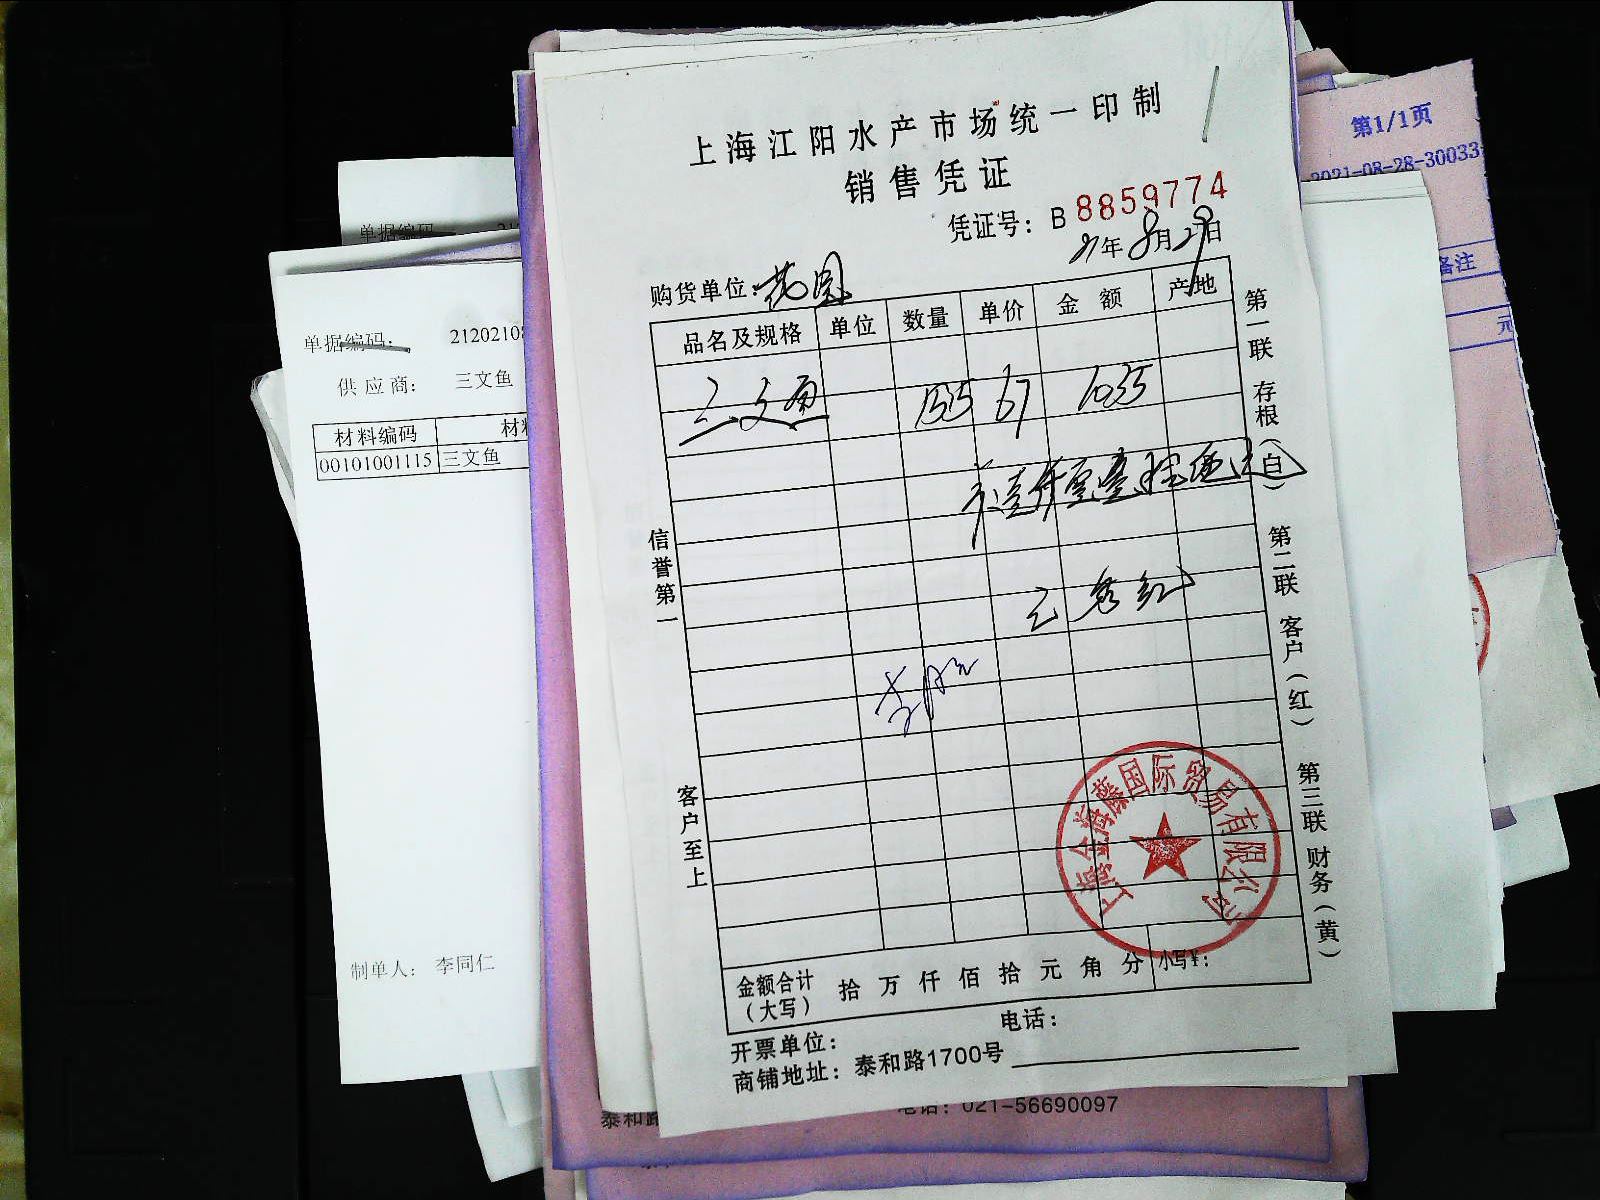 上海江阳水产市场统一印制
销售凭证
凭证号：B 8859774
21年8月29日
购货单位：花园
品名及规格 单位 数量 单价 金额 产地
三文鱼 155 67 1035
李
信誉第一
客户至上
第一联 存根（白） 第二联 客户（红） 第三联 财务（黄）
国际贸易有限公司
金额合计（大写） 拾 万 仟 佰 拾 元 角 分 小写¥：
开票单位： 电话：
商铺地址：泰和路1700号
泰和路
电话：021-56690097
单据编码
单据编码： 2120210
供应商： 三文鱼
材料编码 材
00101001115 三文鱼
制单人： 李同仁
第1/1页
2021-08-28-30033
备注
元